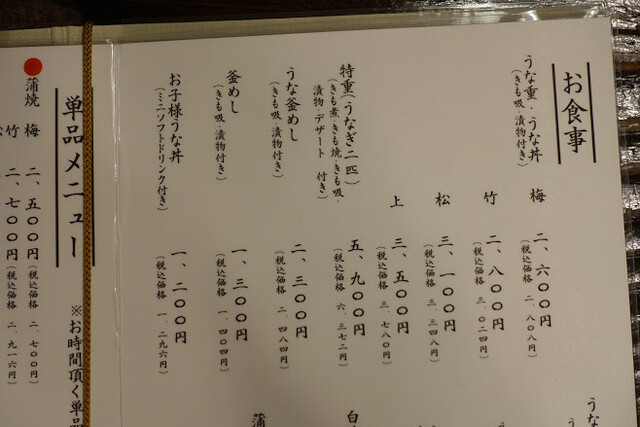 お食事
うな重・うな丼
(きも吸・漬物付き)
梅 二、六〇〇円
(税込価格 二、八〇八円)
竹 二、八〇〇円
(税込価格 三、〇二四円)
松 三、一〇〇円
(税込価格 三、三四八円)
上 三、五〇〇円
(税込価格 三、七八〇円)
特重(うなぎ二匹)
(きも煮・きも焼・きも吸・
漬物・デザート 付き)
五、九〇〇円
(税込価格 六、三七二円)
うな釜めし
(きも吸・漬物付き)
二、三〇〇円
(税込価格 二、四八四円)
釜めし
(きも吸・漬物付き)
一、三〇〇円
(税込価格 一、四〇四円)
お子様うな丼
(ミニソフトドリンク付き)
一、二〇〇円
(税込価格 一、二九六円)
うな
白
蒲
単品メニュー
※お時間頂く単品
蒲焼 梅 二、五〇〇円
(税込価格 二、七〇〇円)
竹 二、七〇〇円
(税込価格 二、九一六円)